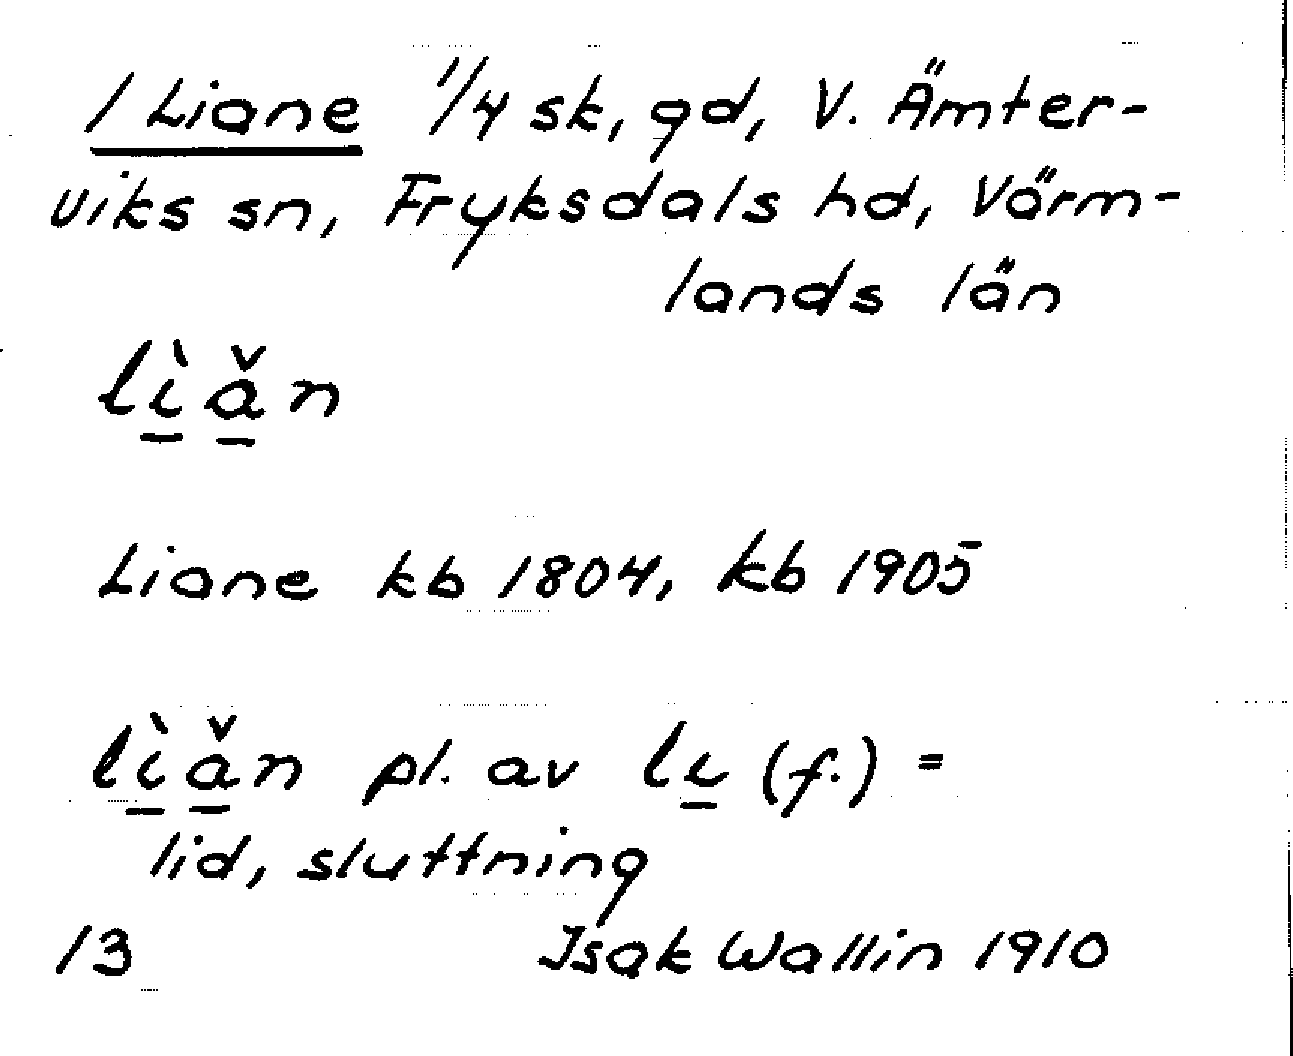 1 Liane 1/4 sk, gd, V. Ämter-
viks sn, Fryksdals hd, Värm-
lands län
lı̱̀ǎ̱n
Liane kb 1804, kb 1905
lı̱̀ǎ̱n pl. av lı̱ (f.) =
lid, sluttning
13 Isak Wallin 1910